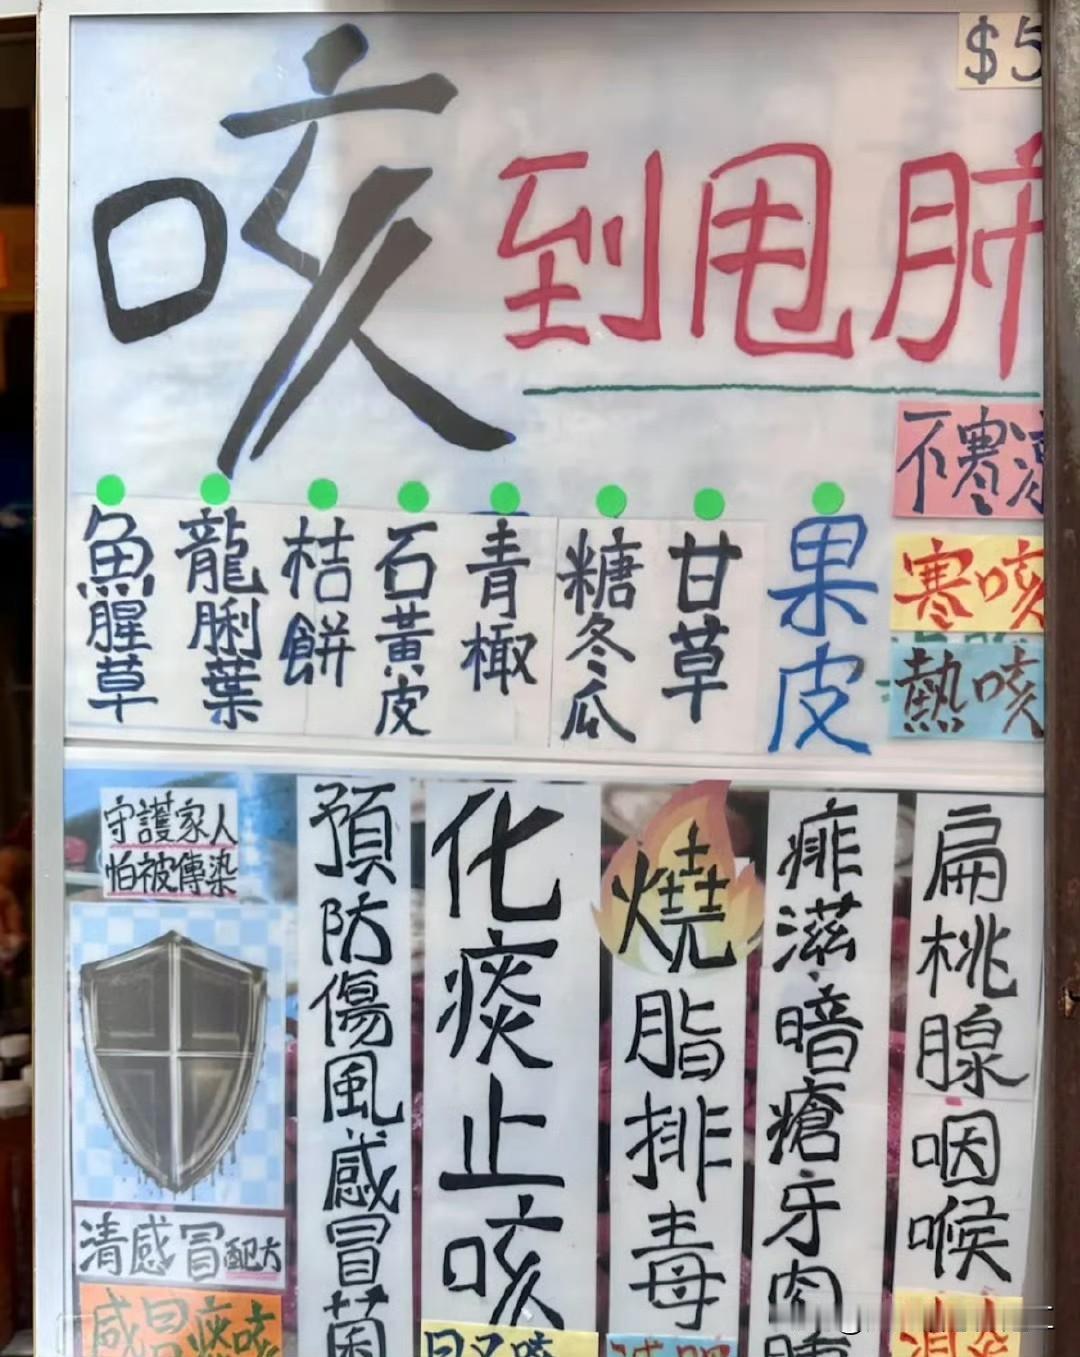 $5
咳到甩肺
不寒涼
寒咳
熱咳
魚腥草
龍脷葉
桔餅
石黃皮
青橄
糖冬瓜
甘草
果皮
守護家人
怕被傳染
清感冒配方
預防傷風感冒菌
化痰止咳
燒脂排毒
痱滋暗瘡牙肉
扁桃腺咽喉